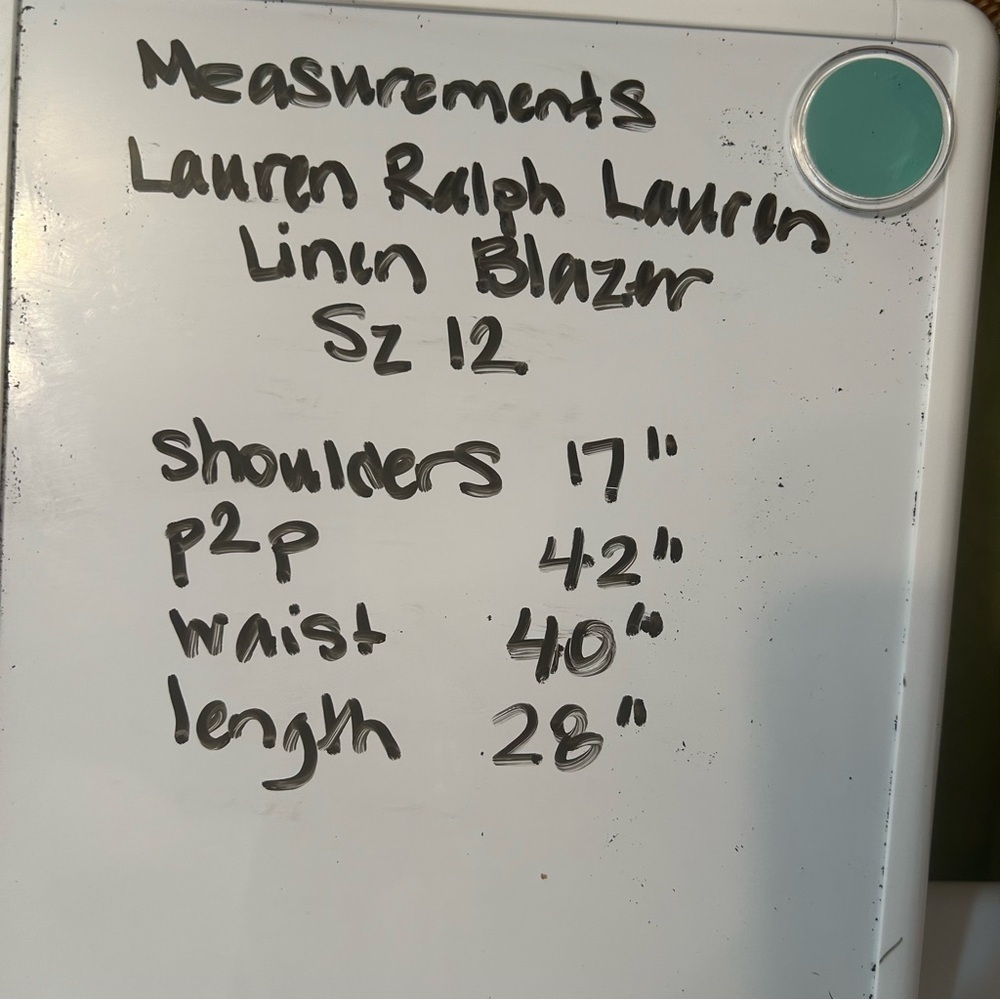 Measurements
Lauren Ralph Lauren
Linen Blazer
Sz 12
shoulders 17"
p2p 42"
waist 40"
length 28"